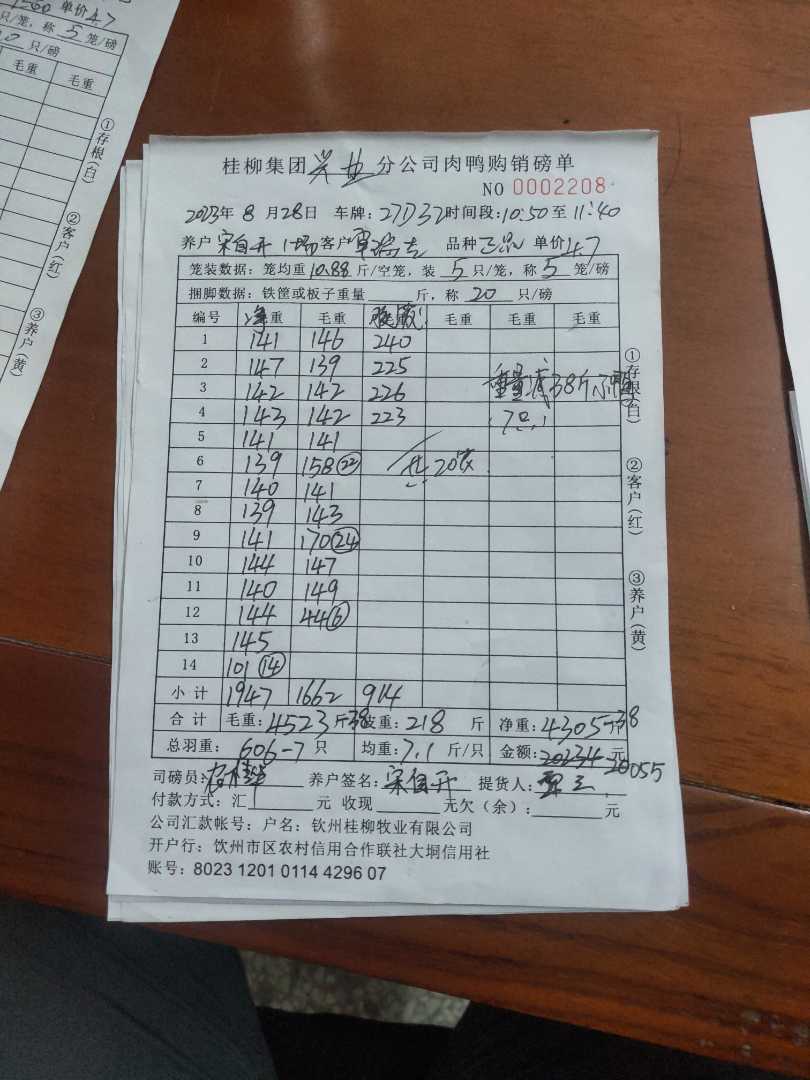 单价4.7
只/笼，称 5 笼/磅
只/磅
毛重 毛重
①存根(白)
②客户(红)
③养户(黄)
桂柳集团兴业分公司肉鸭购销磅单
NO 0002208
2023年 8 月 28日 车牌：27D32 时间段：10:50 至 11:40
养户 宋自开 1场 客户 品种 正品 单价 4.7
笼装数据：笼均重 10.88 斤/空笼，装 5 只/笼，称 5 笼/磅
捆脚数据：铁筐或板子重量 斤，称 20 只/磅
编号 净重 毛重 毛重 毛重 毛重
1 141 146 240
2 147 139 225
3 142 142 226 重量减38斤小鸭
4 143 142 223 7只
5 141 141
6 139 158 22 共20
7 140 141
8 139 143
9 141 170 24
10 144 147
11 140 149
12 144 44 6
13 145
14 101 14
小计 1947 1662 914
合计 毛重：4523 斤 38 皮重：218 斤 净重：4305-38 斤
总羽重：606-7 只 均重：7.1 斤/只 金额：20234 元 20055
司磅员： 养户签名：宋自开 提货人：
付款方式：汇 元 收现 元欠（余）： 元
公司汇款帐号：户名：钦州桂柳牧业有限公司
开户行：饮州市区农村信用合作联社大垌信用社
账号：8023 1201 0114 4296 07
①存根(白)
②客户(红)
③养户(黄)